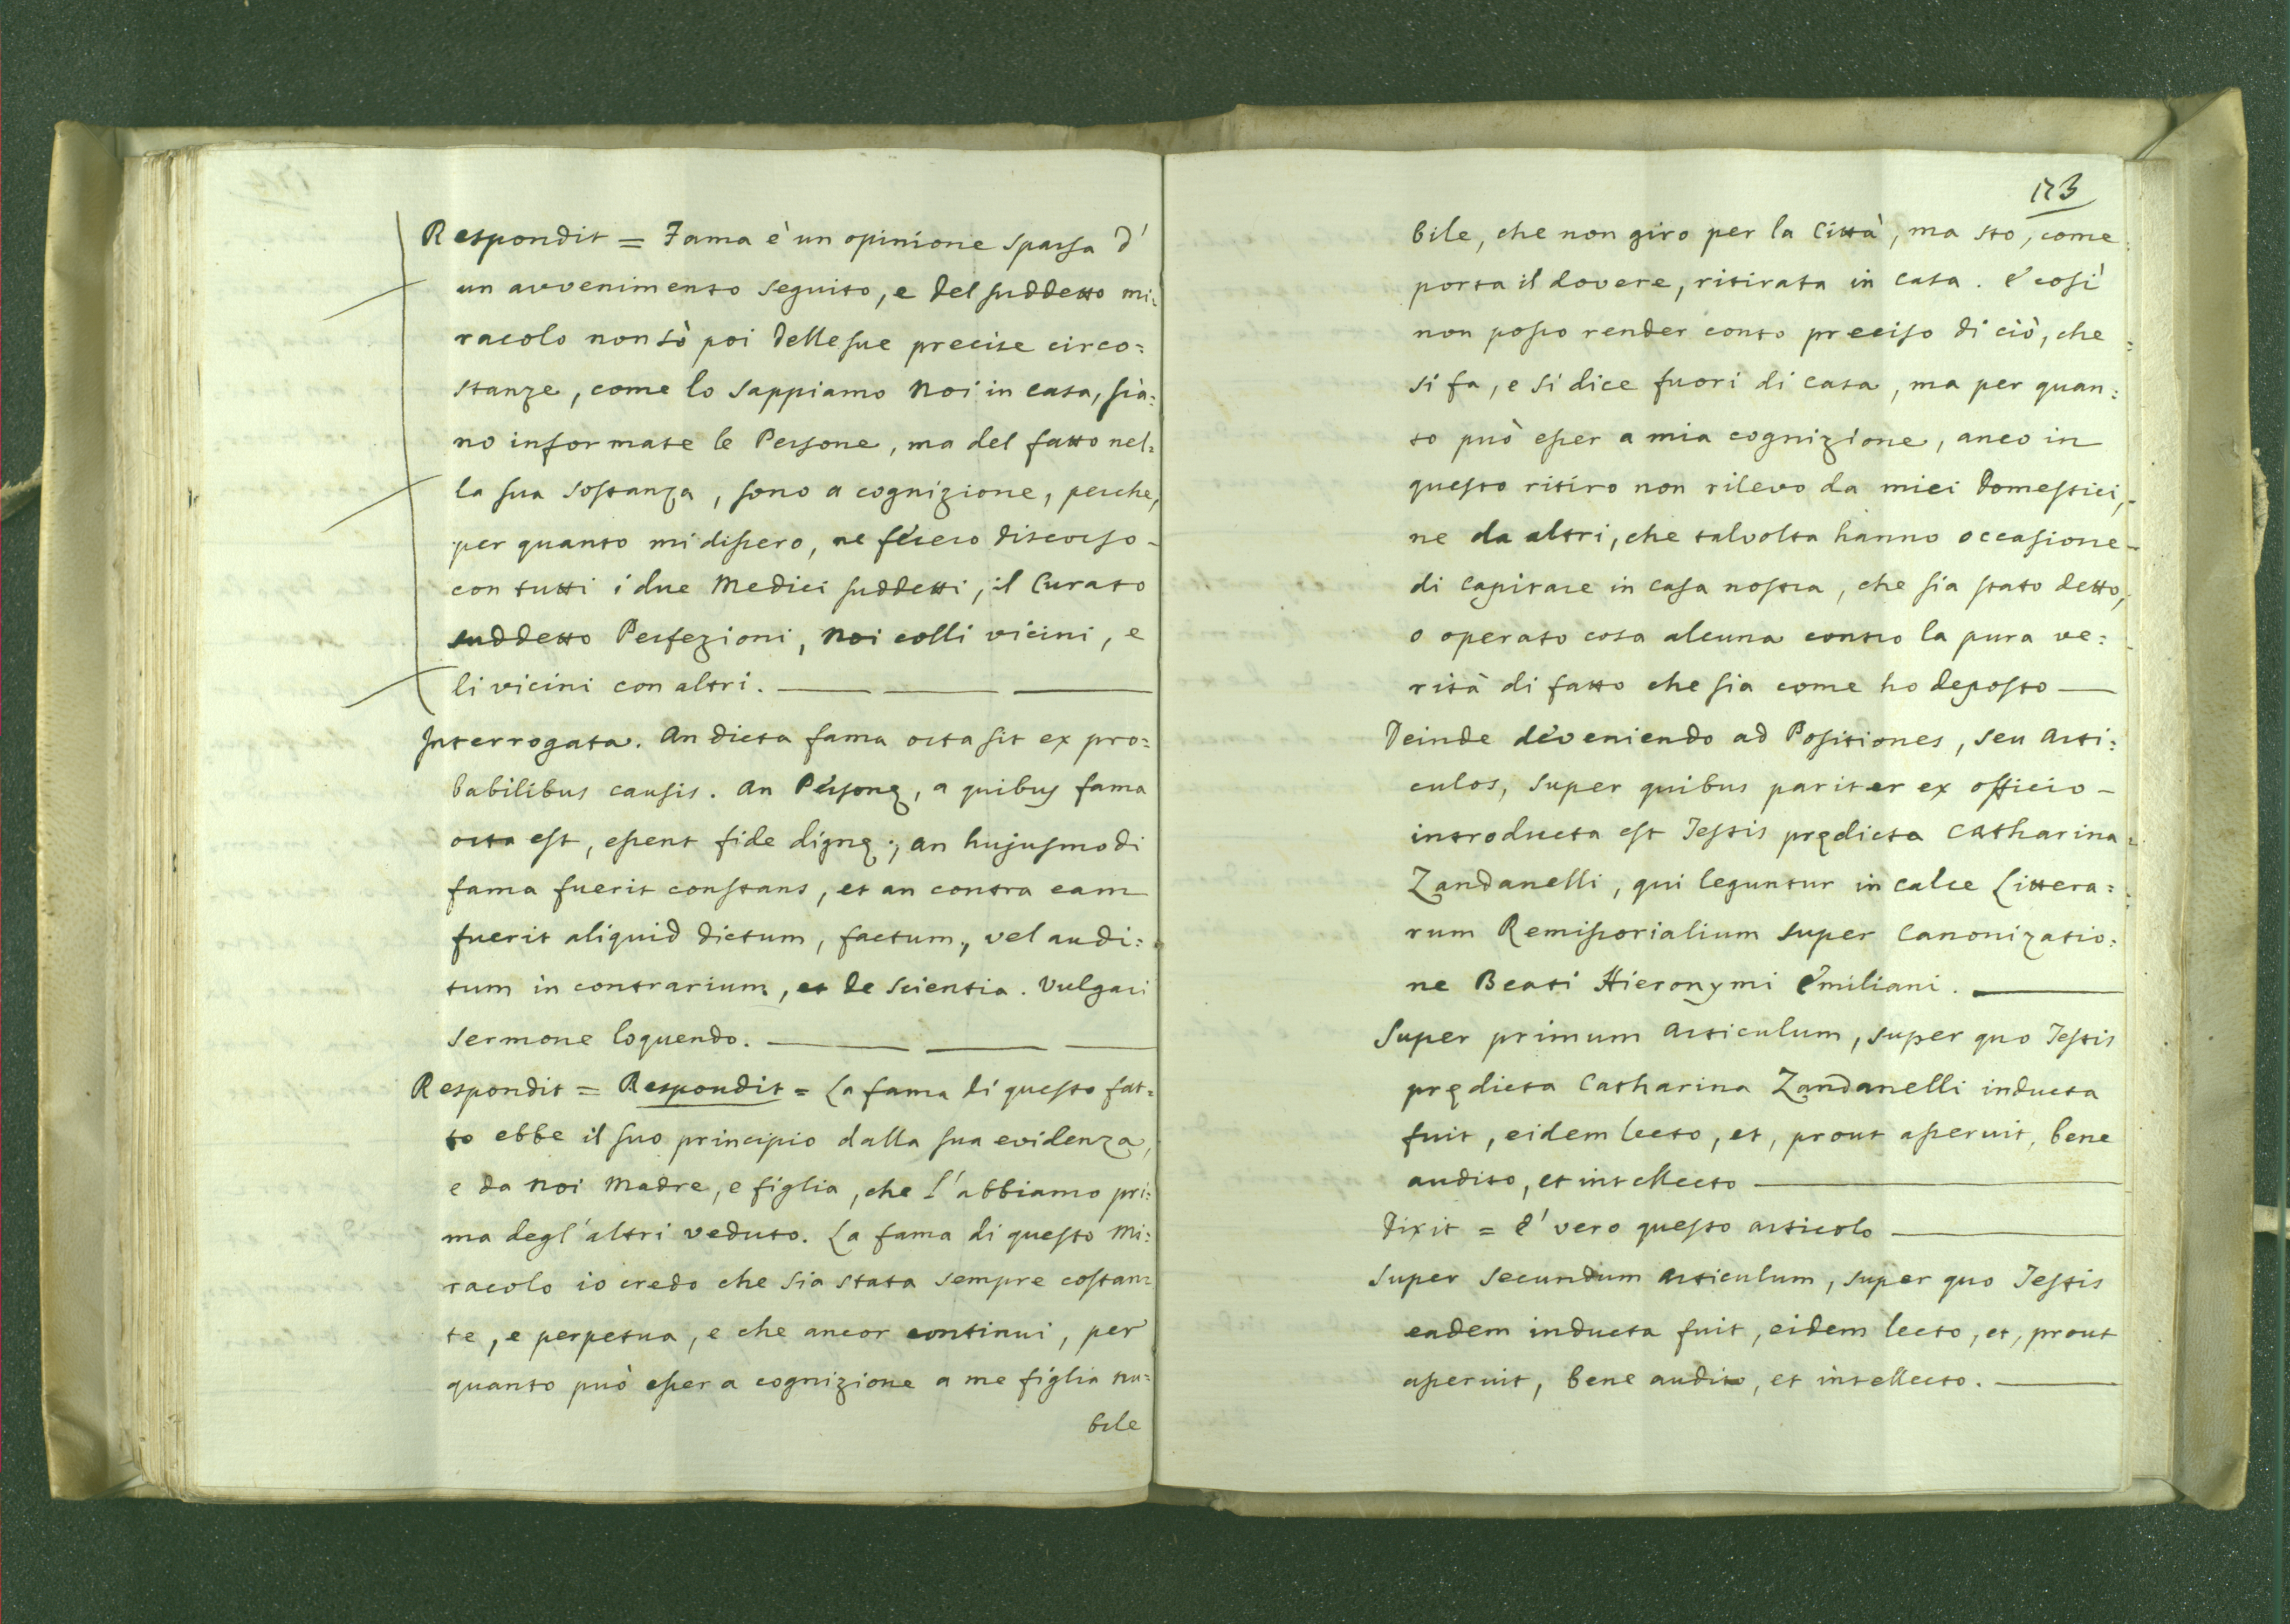 Respondit = Fama è un opinione sparsa d'
un avvenimento seguito, e del suddetto mi=
racolo non sò poi delle sue precise circo=
stanze, come lo sappiamo noi in casa, sia=
no informate le Persone, ma del fatto nel=
la sua sostanza, sono a cognizione, perche,
per quanto mi dissero, ne fecero discorso
con tutti i due Medici suddetti, il Curato
suddetto Perfezioni, noi colli vicini, e
li vicini con altri.
Interrogata. An dicta fama orta sit ex pro=
babilibus causis. An Personę, a quibus fama
orta est, essent fide dignę; an hujusmodi
fama fuerit constans, et an contra eam
fuerit aliquid dictum, factum, vel audi=
tum in contrarium, et de scientia. Vulgari
sermone loquendo.
Respondit = Respondit = La fama di questo fat=
to ebbe il suo principio dalla sua evidenza,
e da noi Madre, e figlia, che l'abbiamo pri=
ma degl'altri veduto. La fama di questo Mi=
racolo io credo che sia stata sempre costan=
te, e perpetua, e che ancor continui, per
quanto può esser a cognizione a me figlia nu=
bile
173
bile, che non giro per la Città, ma sto, come
porta il dovere, ritirata in casa. E così
non posso render conto preciso di ciò, che
si fa, e si dice fuori di casa, ma per quan=
to può esser a mia cognizione, anco in
questo ritiro non rilevo da miei domestici,
ne da altri, che talvolta hanno occasione
di capitare in casa nostra, che sia stato detto,
o operato cosa alcuna contro la pura ve=
rità di fatto che sia come ho deposto
Deinde deveniendo ad Positiones, seu Arti=
culos, super quibus pariter ex officio
introducta est Testis prędicta Catharina
Zandanelli, qui leguntur in calce Littera=
rum Remissorialium super Canonizatio=
ne Beati Hieronymi Emiliani.
Super primum Articulum, super quo Testis
prędicta Catharina Zandanelli inducta
fuit, eidem lecto, et, prout asseruit, bene
audito, et intellecto
Dixit = E' vero questo articolo
Super secundum Articulum, super quo Testis
eadem inducta fuit, eidem lecto, et, prout
asseruit, bene audito, et intellecto.